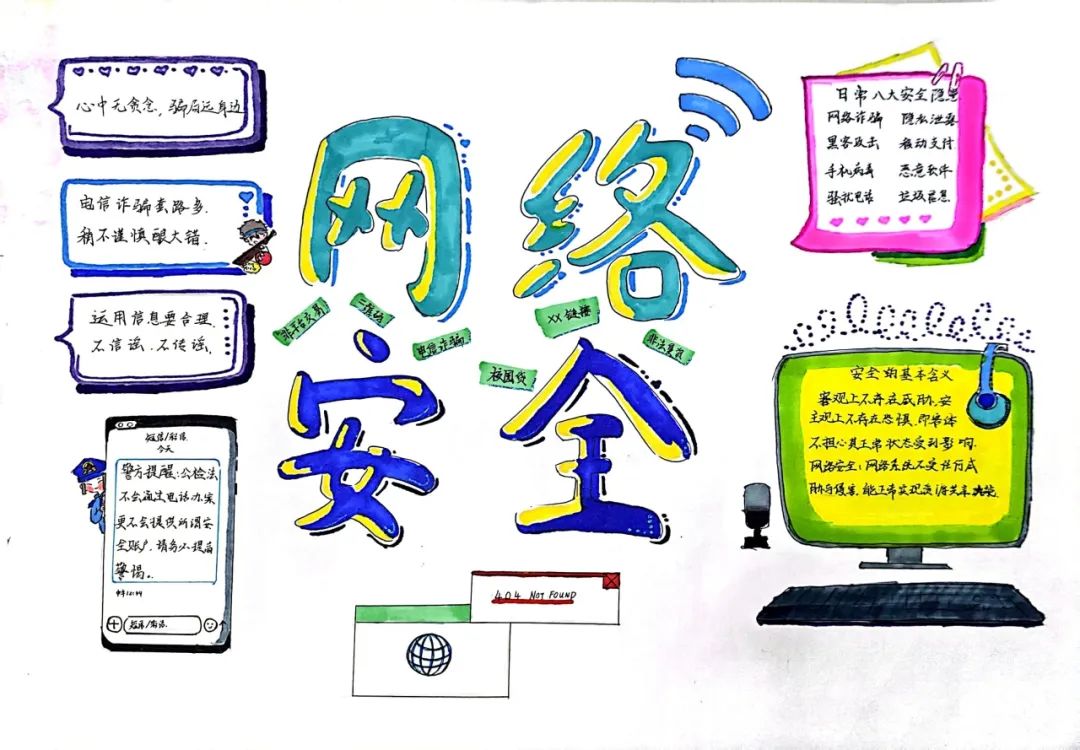 心中无贪念，骗局远身边
电信诈骗套路多.
稍不谨慎酿大错.
运用信息要合理.
不信谣.不传谣.
短信/彩信
今天
警方提醒:公检法
不会通过电话办案
更不会提供所谓安
全账户.请务必提高
警惕.
短信/彩信
网络
安全
非平台交易
二维码
电信诈骗
XX链接
校园贷
404 NOT FOUND
日常八大安全隐患
网络诈骗 隐私泄露
黑客攻击 移动支付
手机病毒 恶意软件
骚扰电话 垃圾信息
安全的基本含义
客观上不存在威胁.安
主观上不存在恐惧.即客体
不担心其正常状态受到影响.
网络安全:网络系统不受任何威
胁与侵害,能正常实现资源共享